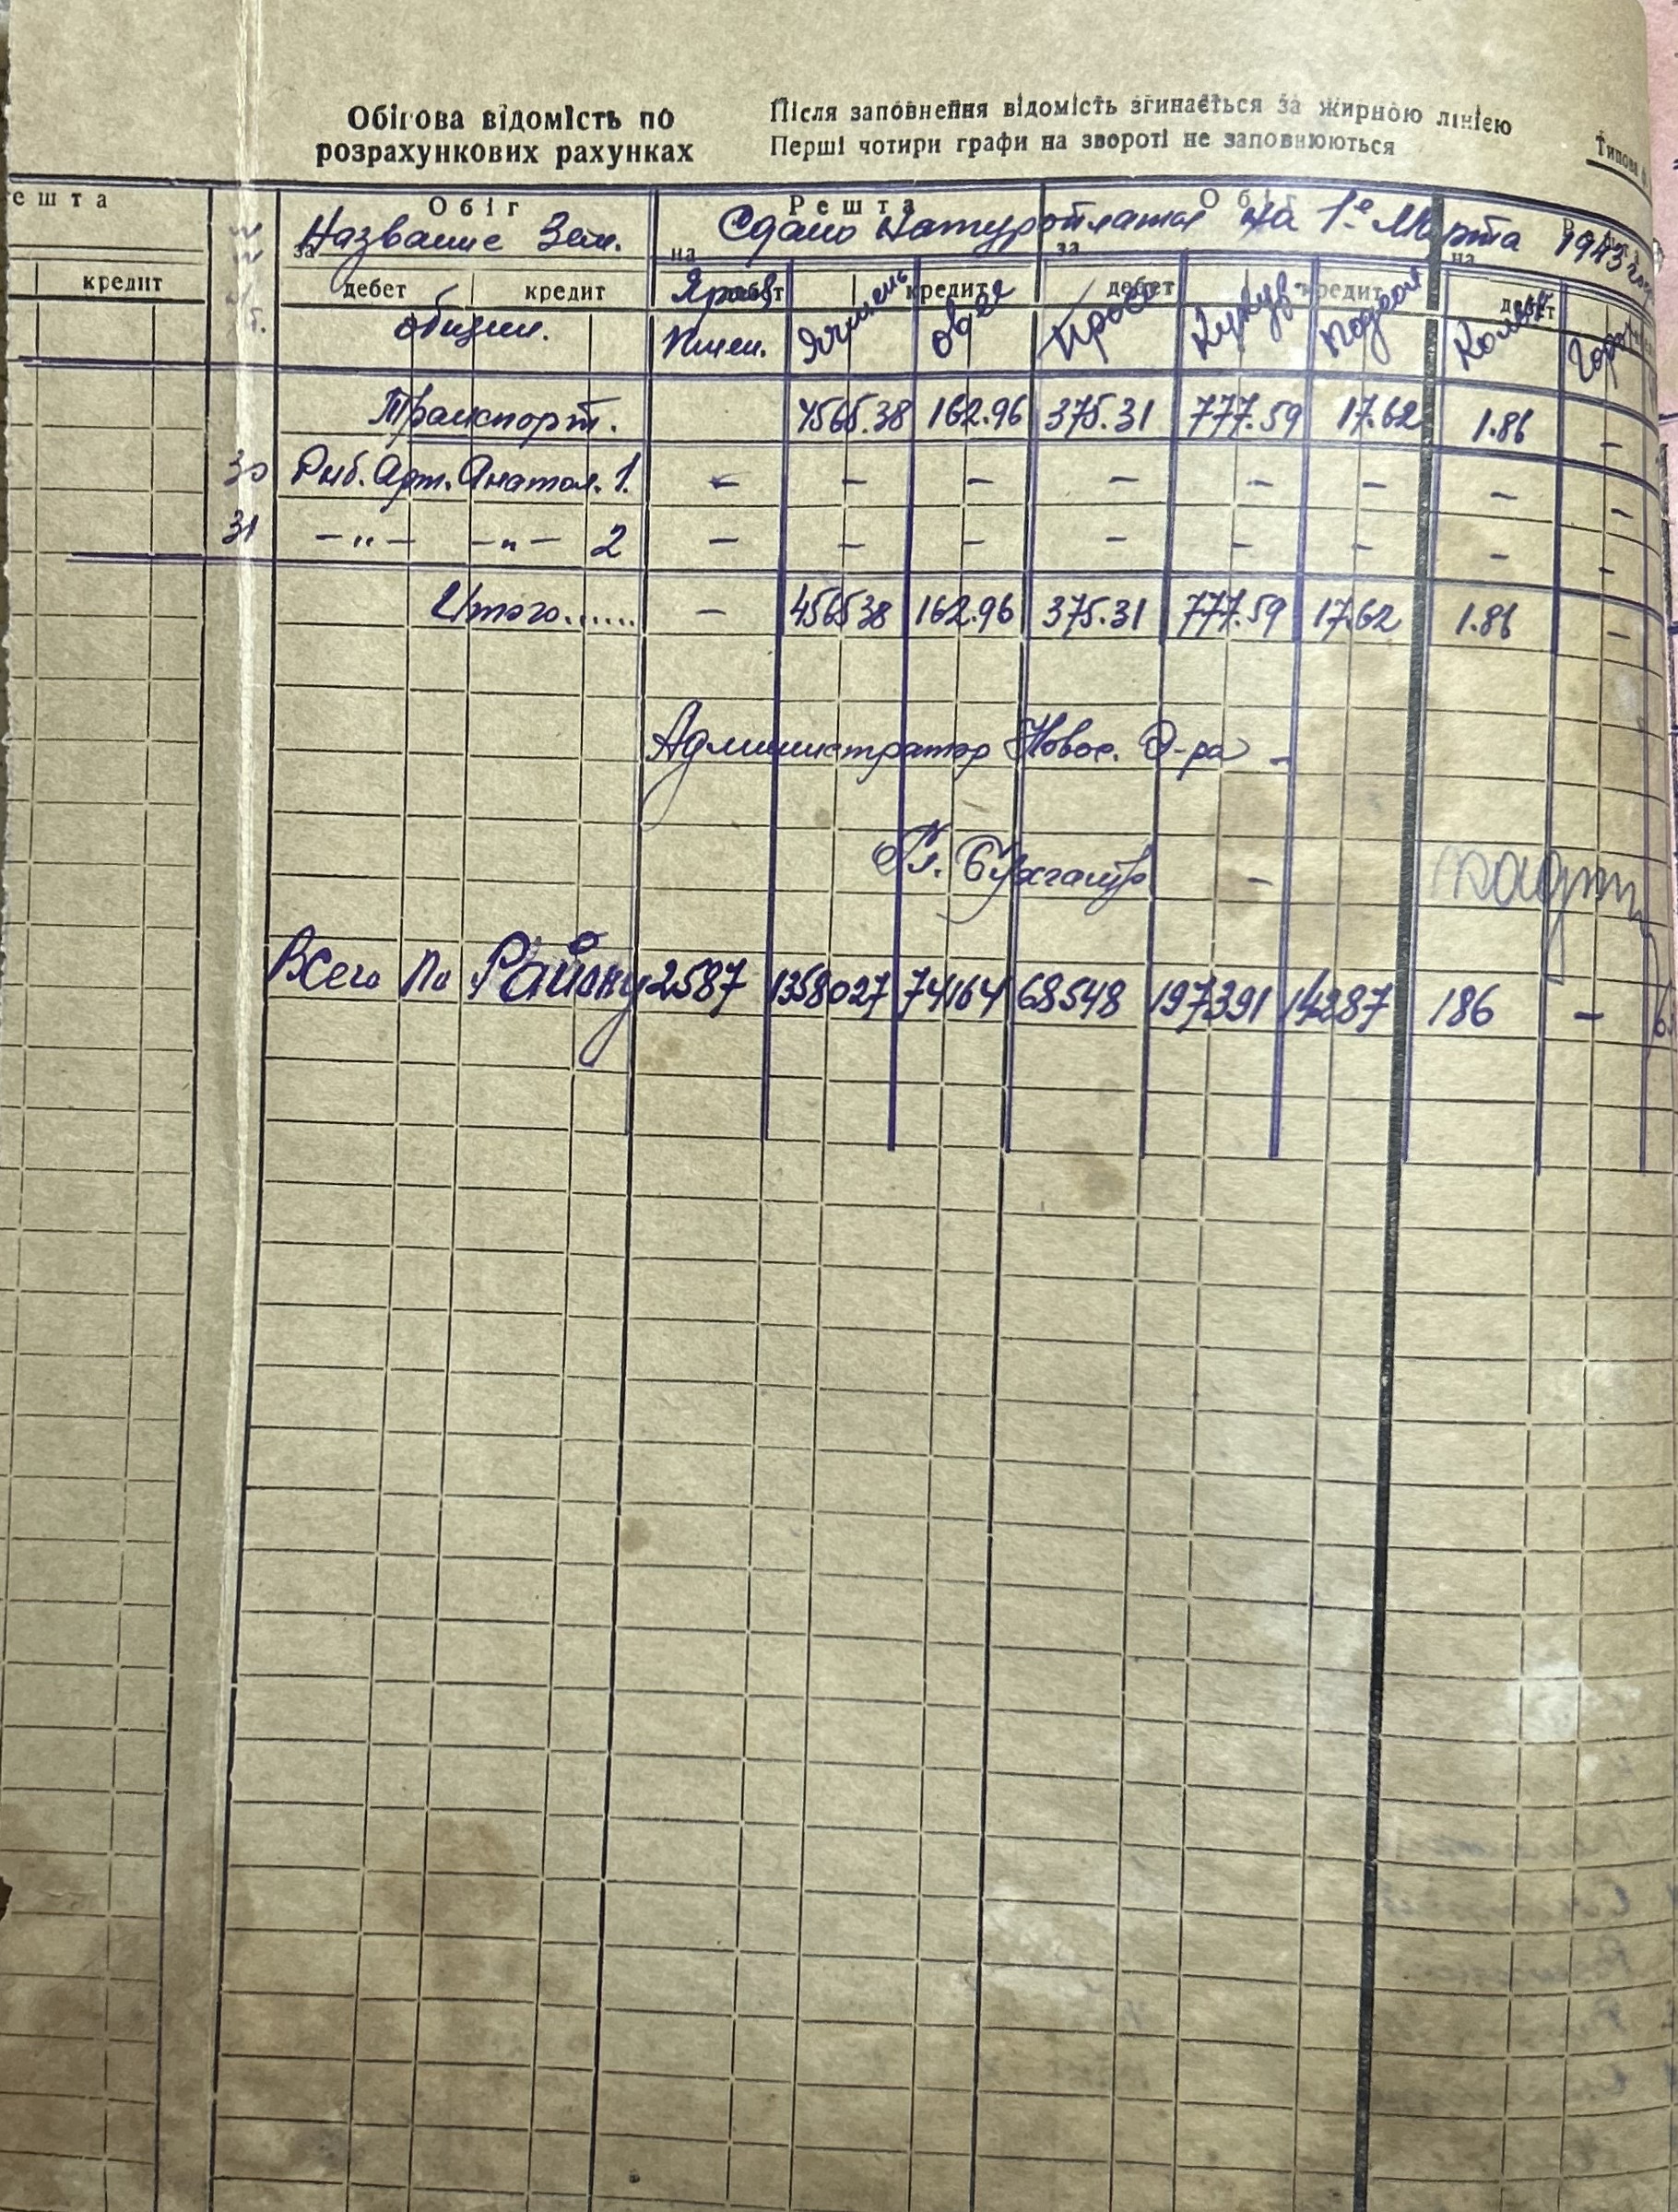 Обігова відомість по
розрахункових рахунках
Після заповнення відомість згинається за жирною лінією
Перші чотири графи на звороті не заповнюються
Типова
ешта Обіг Решта Обіг
Название Зем. Сдано Натуроплаты на 1-е Марта 1943 год
за на за на
кредит дебет кредит дебет кредит дебет кредит дебет
общин. Яров. Пшен. Ячмень овес Просо Кукур. Подсол
Транспорт. 4565.38 162.96 375.31 777.59 17.62 1.86 –
30 Рыб. Арт. Анатол. 1. – – – – – – – –
31 –„– –„– 2 – – – – – – – –
Итого...... – 456538 162.96 375.31 777.59 17.62 1.86 –
Администратор Новос. Р-ра –
Гл. Бухгалтер –
Всего по Району 2587 1358027 74164 68548 197391 14287 186 –